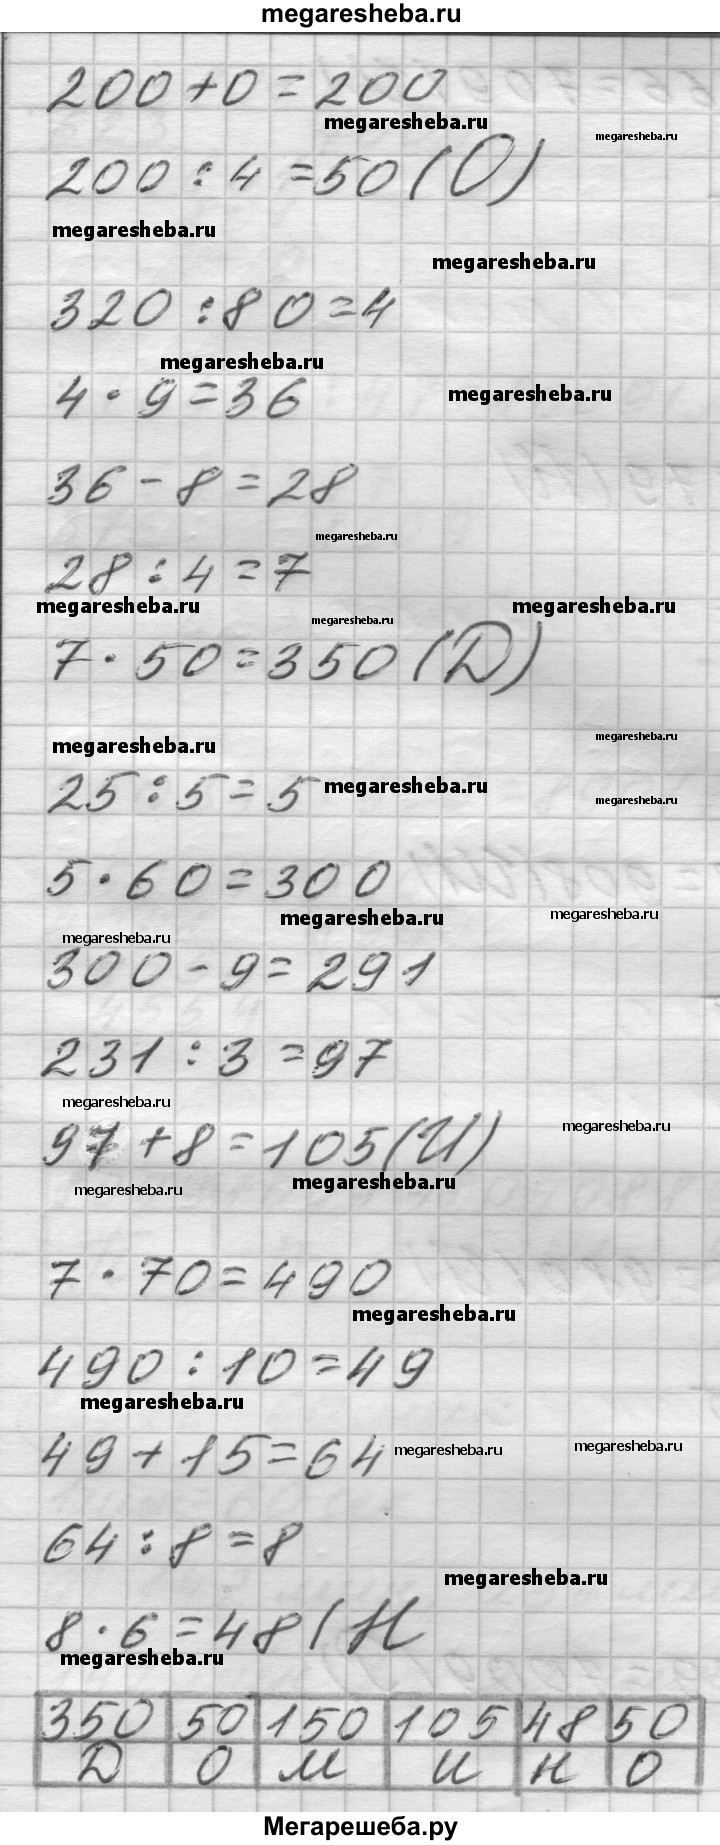 megaresheba.ru
200+0=200
megaresheba.ru
megaresheba.ru
200:4=50(О)
megaresheba.ru
megaresheba.ru
320:80=4
megaresheba.ru
4·9=36
megaresheba.ru
36-8=28
megaresheba.ru
28:4=7
megaresheba.ru
megaresheba.ru
megaresheba.ru
7·50=350(Д)
megaresheba.ru
megaresheba.ru
25:5=5
megaresheba.ru
megaresheba.ru
5·60=300
megaresheba.ru
megaresheba.ru
megaresheba.ru
300-9=291
231:3=97
megaresheba.ru
megaresheba.ru
97+8=105(И)
megaresheba.ru
megaresheba.ru
7·70=490
megaresheba.ru
490:10=49
megaresheba.ru
49+15=64
megaresheba.ru
megaresheba.ru
64:8=8
megaresheba.ru
8·6=48(Н
megaresheba.ru
350 50 150 105 48 50
Д О М И Н О
Мегарешеба.ру